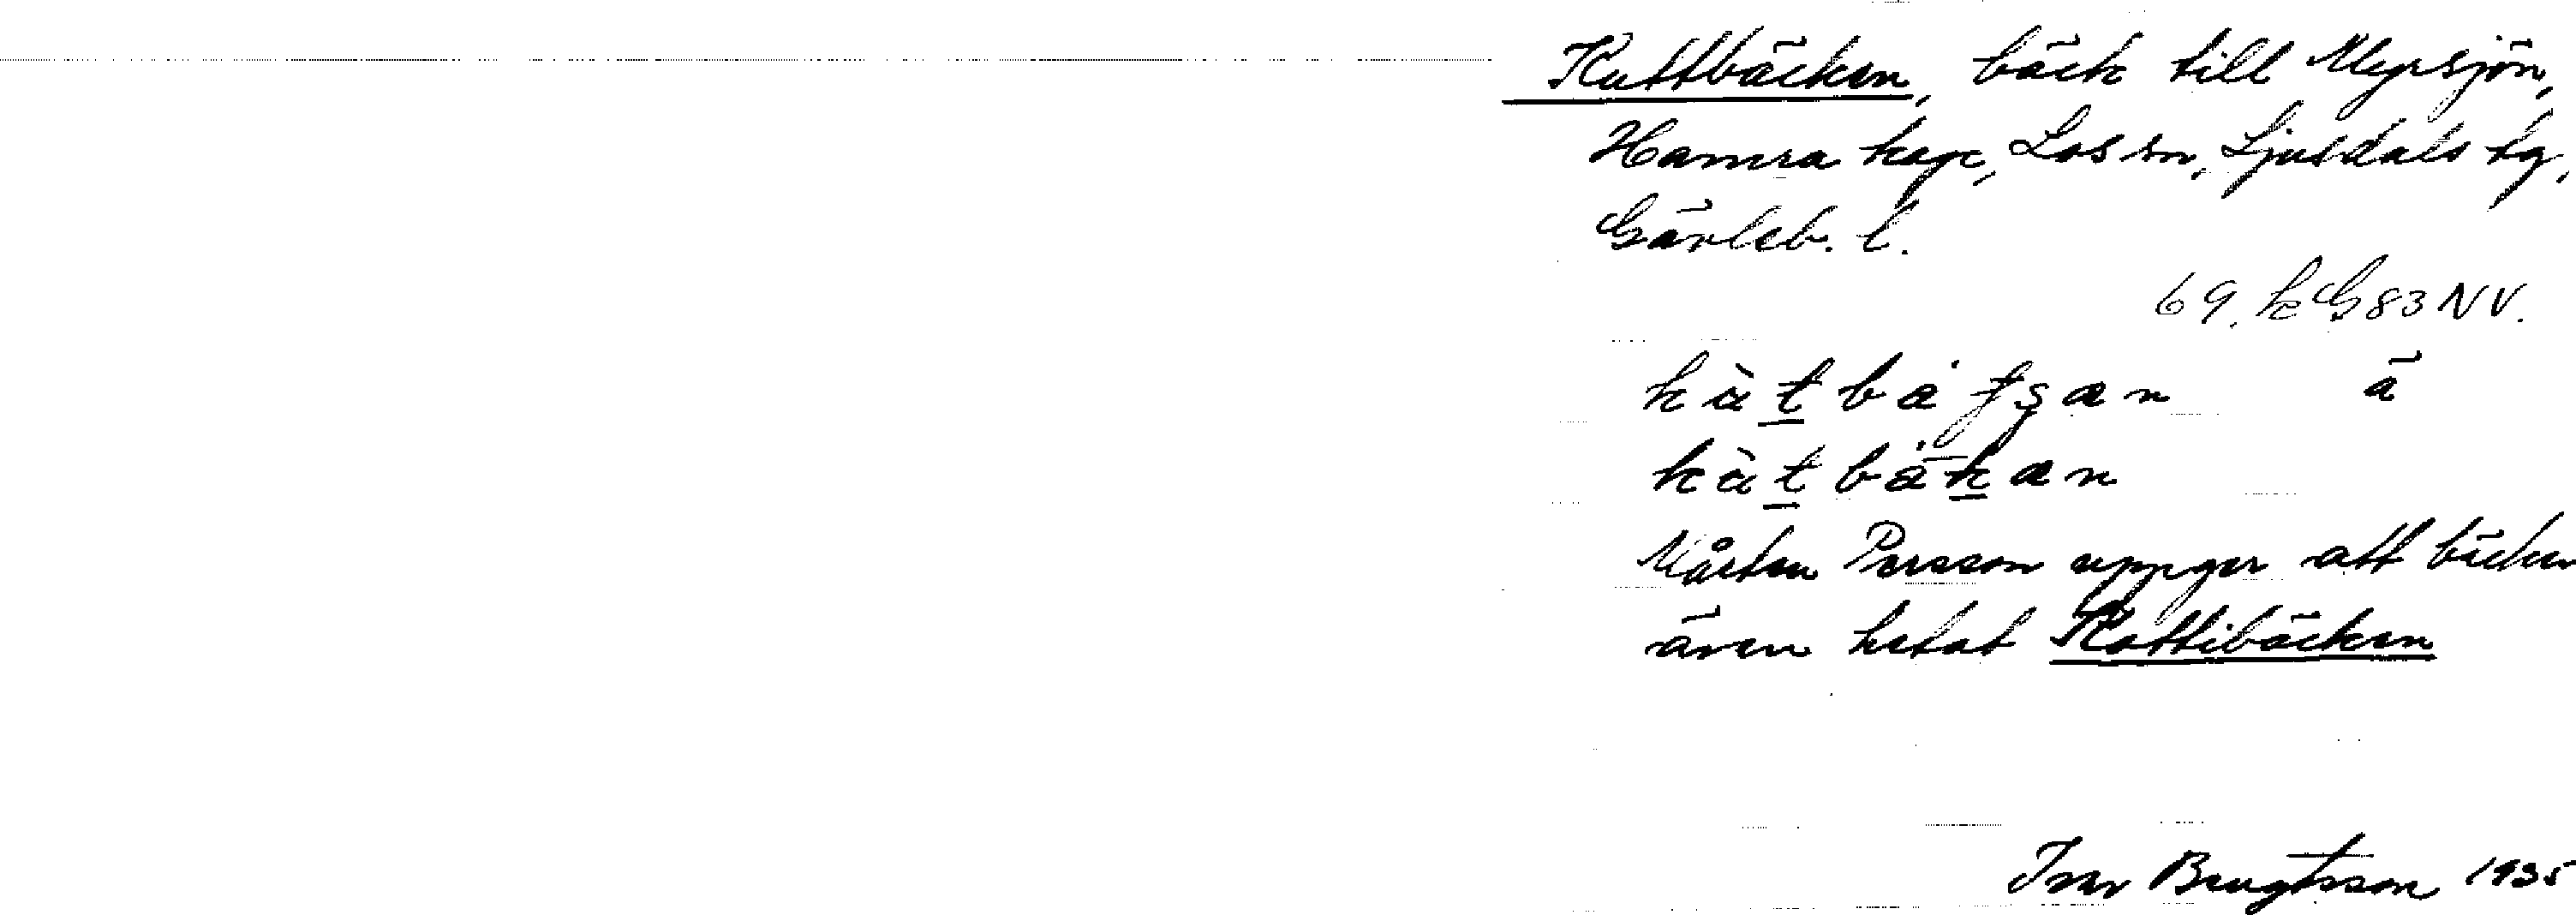 Kattbäcken, bäck till Myrsjön,
Hamra kap, Los sn, Ljusdals tg,
Gävleb. l.
69. k G 83 NV.
Mårten Persson uppger att bäcken
även hetat Kattibäcken
Ivar Bengtsson 1935